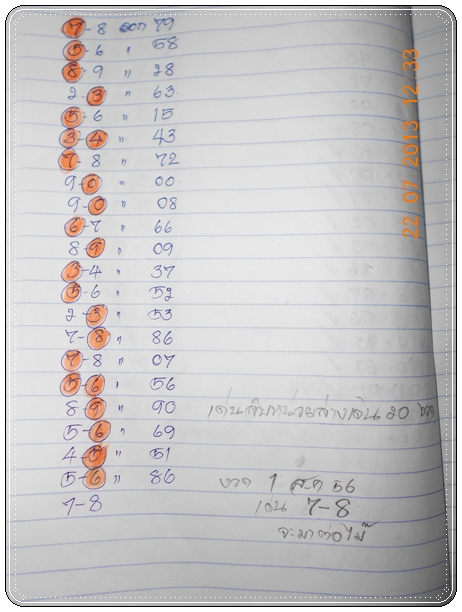 7-8 ออก 79
5-6 " 58
8-9 " 28
2-3 " 63
5-6 " 15
3-4 " 43
7-8 " 72
9-0 " 00
9-0 " 08
6-7 " 66
8-9 " 09
3-4 " 37
5-6 " 52
2-3 " 53
7-8 " 86
7-8 " 07
5-6 " 56
8-9 " 90
5-6 " 69
4-5 " 51
5-6 " 86
7-8
เด่นสิบหน่วยล่างเดิน 20
งวด 1 ส.ค 56
เด่น 7-8
จะมาต่อไม๊
22 07 2013 12 33